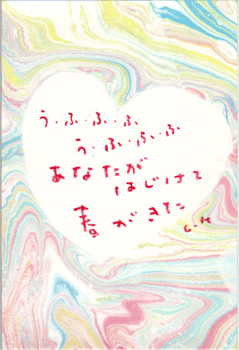 う・ふ・ふ・ふ
う・ふ・ふ・ふ
あなたが
はじけて
春がきた